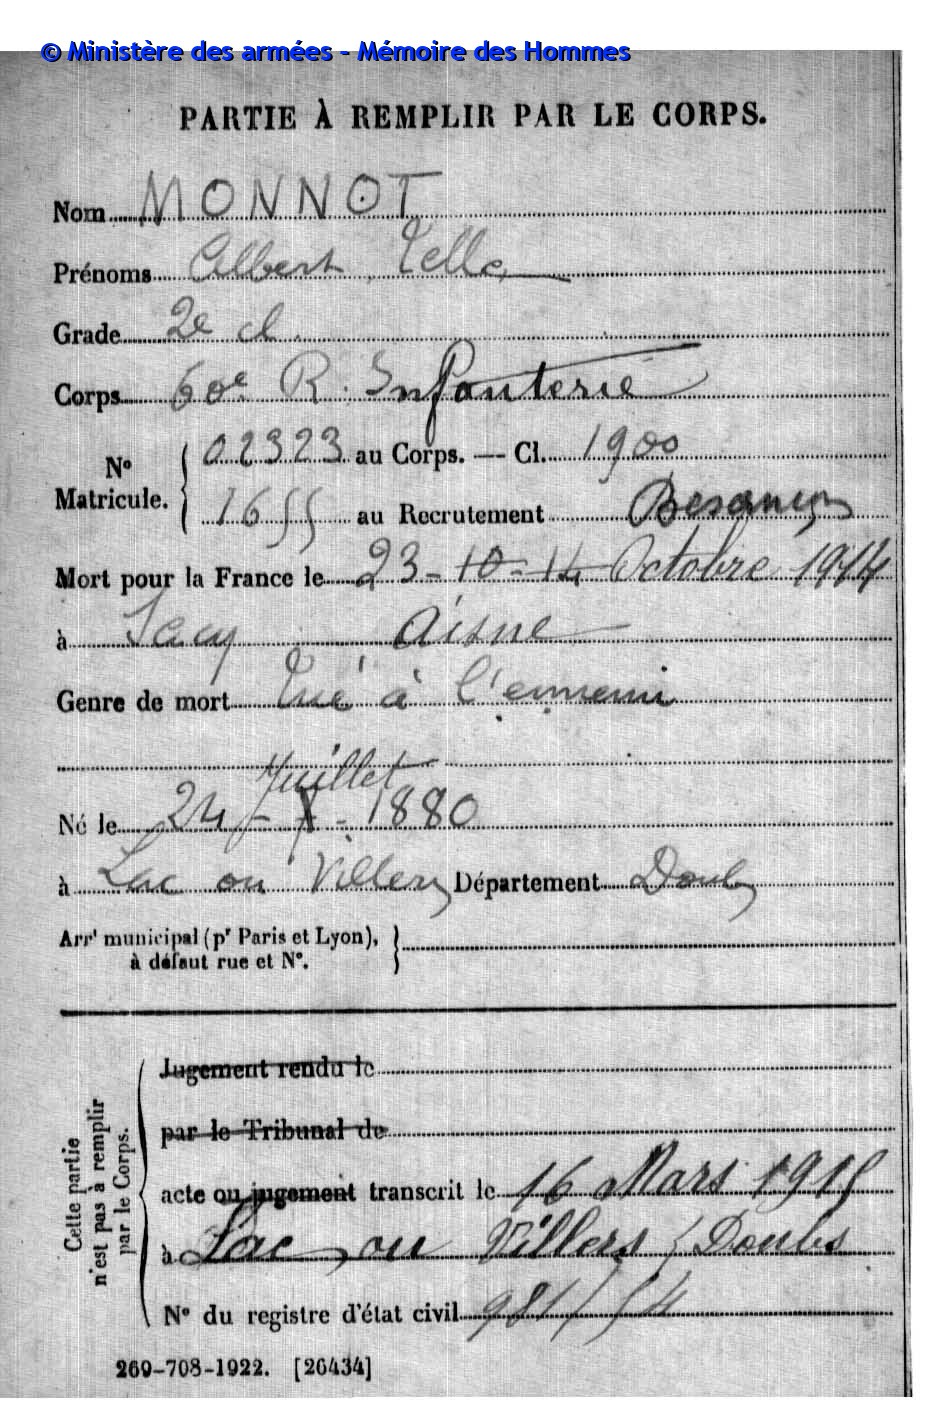 © Ministère des armées - Mémoire des Hommes
PARTIE À REMPLIR PAR LE CORPS.
Nom MONNOT
Prénoms Albert
Grade 2e cl.
Corps 60e R. Infanterie
N° Matricule. 02323 au Corps. — Cl. 1900
1655 au Recrutement Besançon
Mort pour la France le 23 - 10 - 14 Octobre 1914
à Aisne
Genre de mort tué à l'ennemi
Juillet
Né le 24 - 7 - 1880
à Lac ou Villers Département Doubs
Arrt municipal (pr Paris et Lyon),
à défaut rue et N°.
Cette partie n'est pas à remplir par le Corps.
Jugement rendu le
par le Tribunal de
acte ou jugement transcrit le 16 Mars 1915
à Lac ou Villers (Doubs
N° du registre d'état civil 981/54
269-708-1922. [26434]